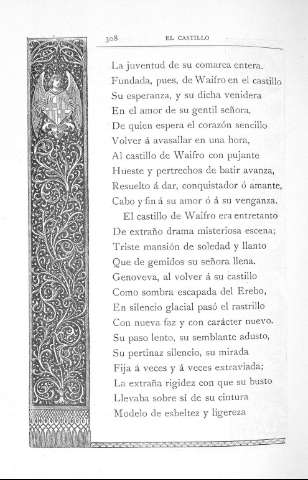 308 EL CASTILLO
La juventud de su comarca entera.
Fundada, pues, de Waifro en el castillo
Su esperanza, y su dicha venidera
En el amor de su gentil señora,
De quien espera el corazón sencillo
Volver á avasallar en una hora,
Al castillo de Waifro con pujante
Hueste y pertrechos de batir avanza,
Resuelto á dar, conquistador ó amante,
Cabo y fin á su amor ó á su venganza.
El castillo de Waifro era entretanto
De extraño drama misteriosa escena;
Triste mansión de soledad y llanto
Que de gemidos su señora llena.
Genoveva, al volver á su castillo
Como sombra escapada del Erebo,
En silencio glacial pasó el rastrillo
Con nueva faz y con carácter nuevo.
Su paso lento, su semblante adusto,
Su pertinaz silencio, su mirada
Fija á veces y á veces extraviada;
La extraña rigidez con que su busto
Llevaba sobre sí de su cintura
Modelo de esbeltez y ligereza